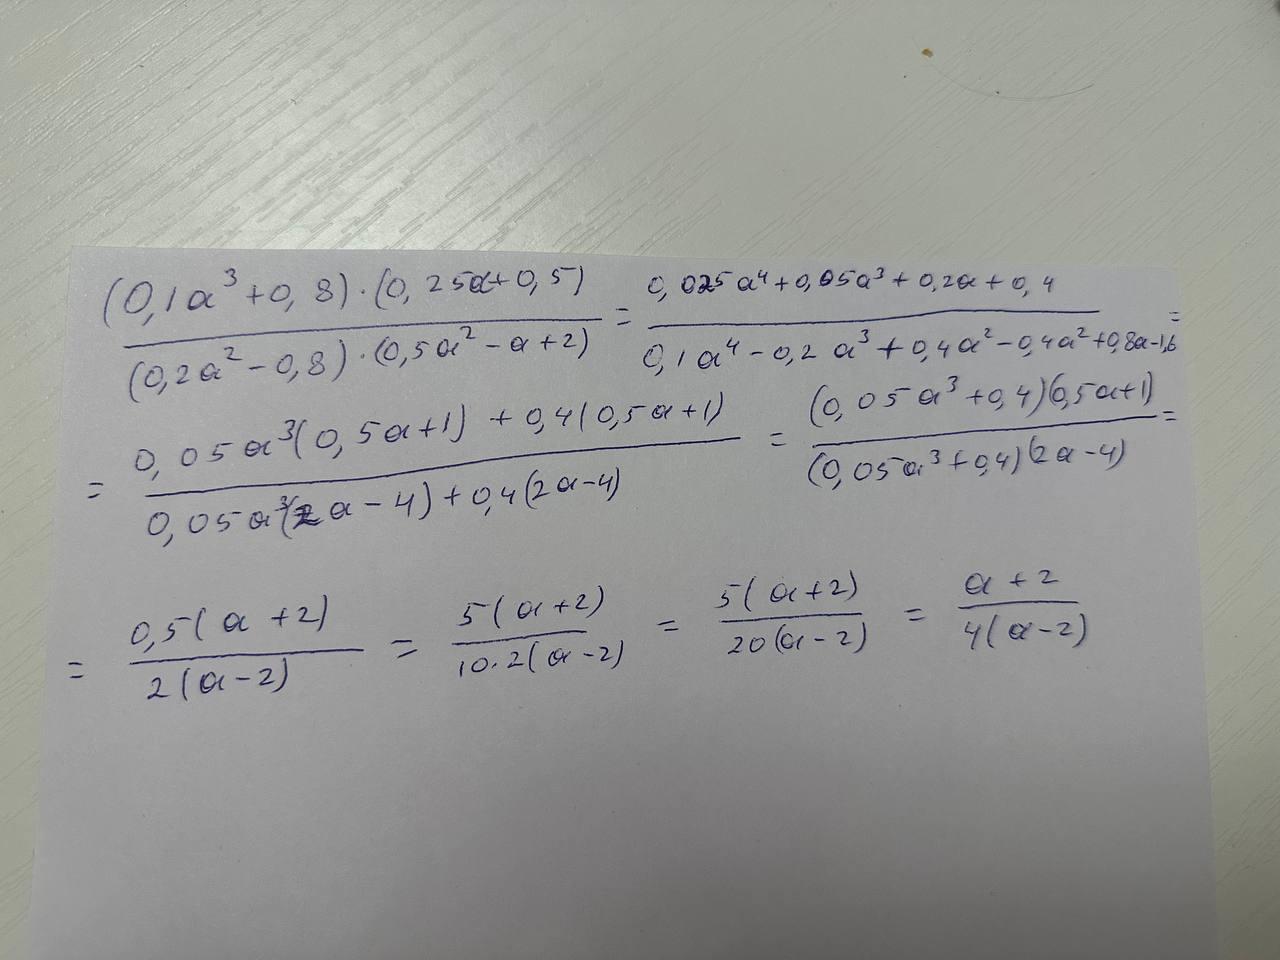 (0,1a³+0,8)·(0,25a+0,5) / (0,2a²-0,8)·(0,5a²-a+2) = 0,025a⁴+0,05a³+0,2a+0,4 / 0,1a⁴-0,2a³+0,4a²-0,4a²+0,8a-1,6 =
= 0,05a³(0,5a+1)+0,4(0,5a+1) / 0,05a³(2a-4)+0,4(2a-4) = (0,05a³+0,4)(0,5a+1) / (0,05a³+0,4)(2a-4) =
= 0,5(a+2) / 2(a-2) = 5(a+2) / 10·2(a-2) = 5(a+2) / 20(a-2) = a+2 / 4(a-2)